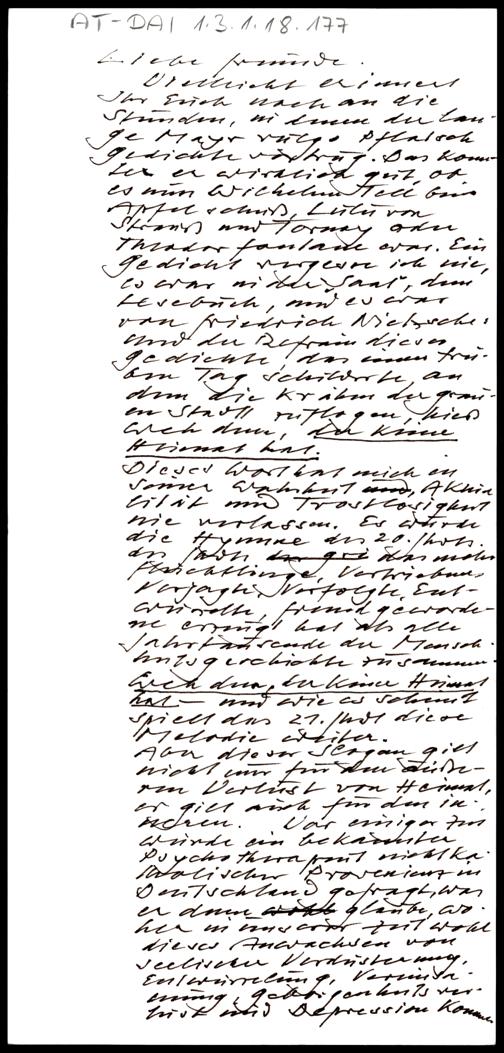 AT-DAI 1.3.1.18.177
Liebe Freunde.
Vielleicht erinnert
Ihr Euch noch an die
Stunden, in denen der lan-
ge Mayr vulgo Pflatsch
Gedichte vortrug. Das konn-
te er wirklich gut, ob
es nun Wilhelm Tell beim
Apfelschuß, Lulu von
Strauß und Torney oder
Theodor Fontane war. Ein
Gedicht vergesse ich nie,
es war in der "Saat", dem
Lesebuch, und es war
von Friedrich Nietzsche:
und der Refrain dieses
Gedichts, das einen trü-
ben Tag schilderte, an
dem die Krähen der grau-
en Stadt zuflogen, hieß
Weh dem, der keine
Heimat hat.
Dieses Wort hat mich in
seiner Wahrheit und, Aktua-
lität und Trostlosigkeit
nie verlassen. Es wurde
die Hymne des 20. Jhdts.
des Jhdts das mehr
Flüchtlinge, Vertriebene
Verjagte, Verfolgte, Ent-
wurzelte, fremd geworde-
ne erzeugt hat als alle
Jahrtausende der Mensch-
heitsgeschichte zusammen.
Weh dem, der keine Heimat
hat – und wie es scheint
spielt das 21. Jhdt diese
Melodie weiter.
Aber dieser Slogan gilt
nicht nur für den äuße-
ren Verlust von Heimat,
er gilt auch für den in-
neren. Vor einiger Zeit
wurde ein bekannter
Psychotherapeut nichtka-
tholischer Provenienz in
Deutschland gefragt, was
er denn glaube, wo-
her in unserer Zeit wohl
dieses Anwachsen von
seelischer Verdüsterung,
Entwurzelung, Vereinsa-
mung, Geborgenheitsver-
lust und Depression komme